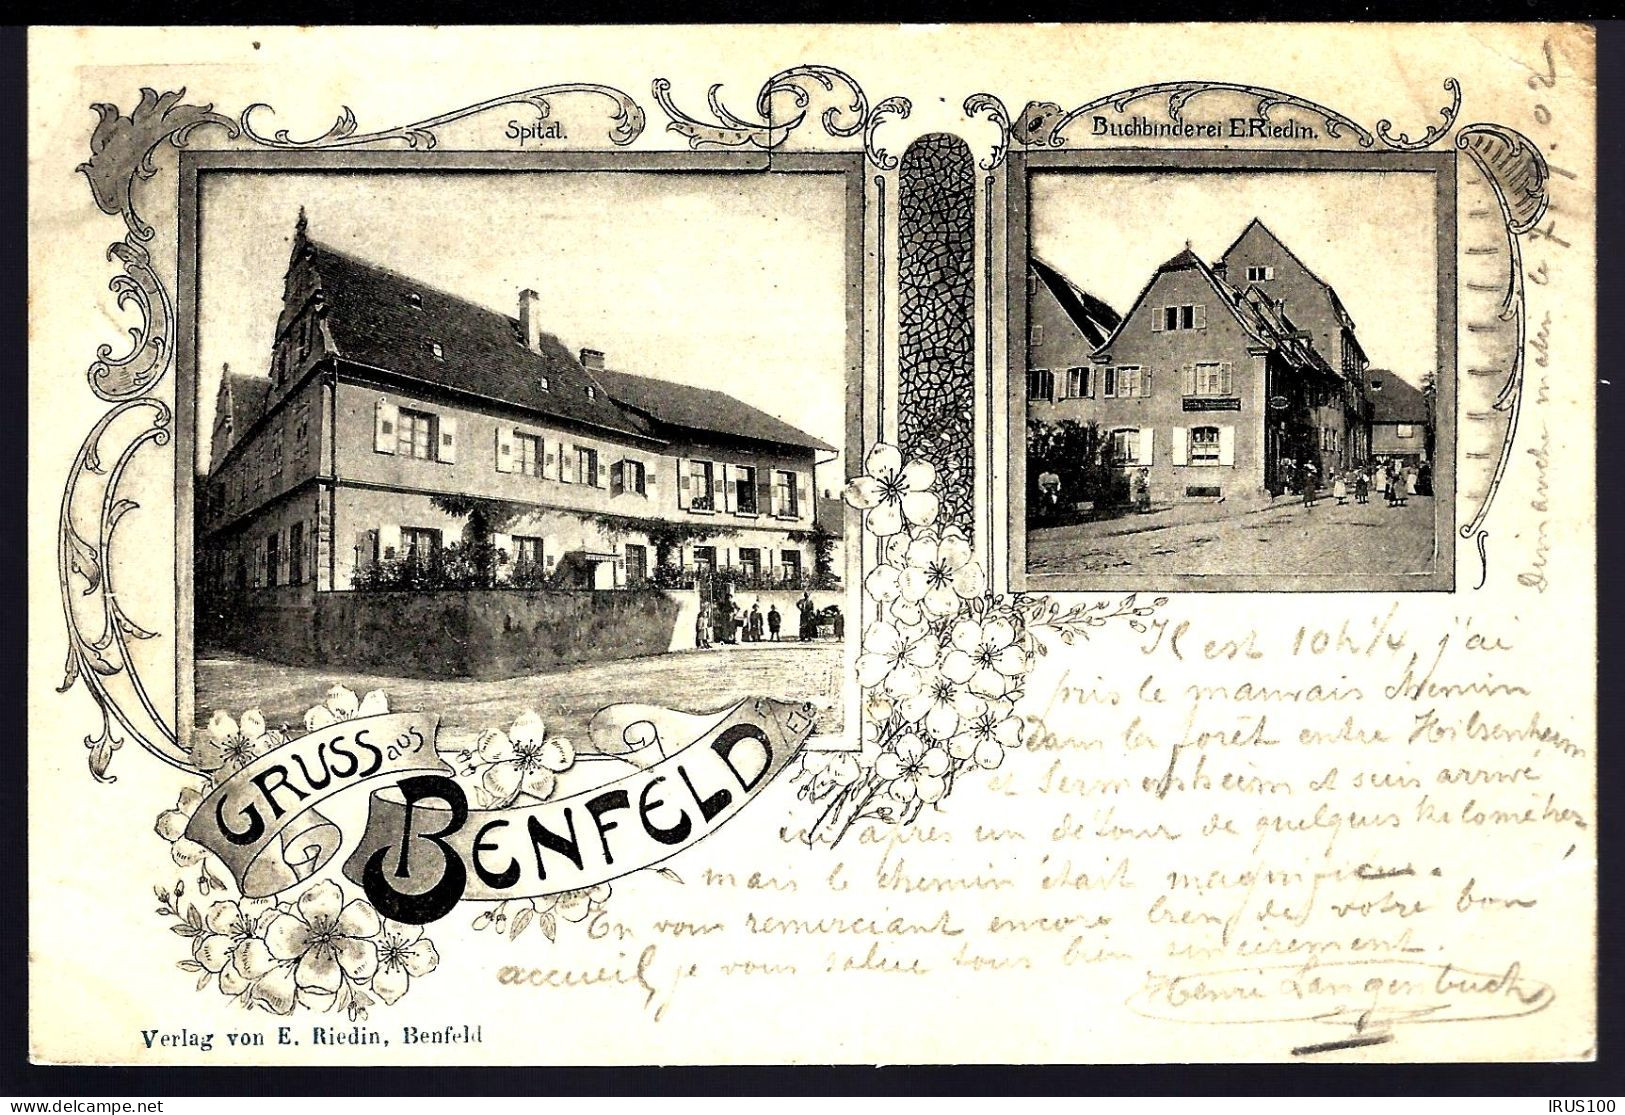 Spital.
Buchbinderei E Riedin.
GRUSS aus
BENFELD i/Els
Dimanche matin le 7/9.02
Il est 10h 1/4, j'ai
pris le mauvais chemin
dans la forêt entre Hilsenheim
et Sermersheim et suis arrivé
ici après un détour de quelques kilomètres,
mais le chemin était magnifique.
En vous remerciant encore bien de votre bon
accueil, je vous salue tous bien sincèrement.
Henri Langenbuch
Verlag von E. Riedin, Benfeld
delcampe.net
IRUS100